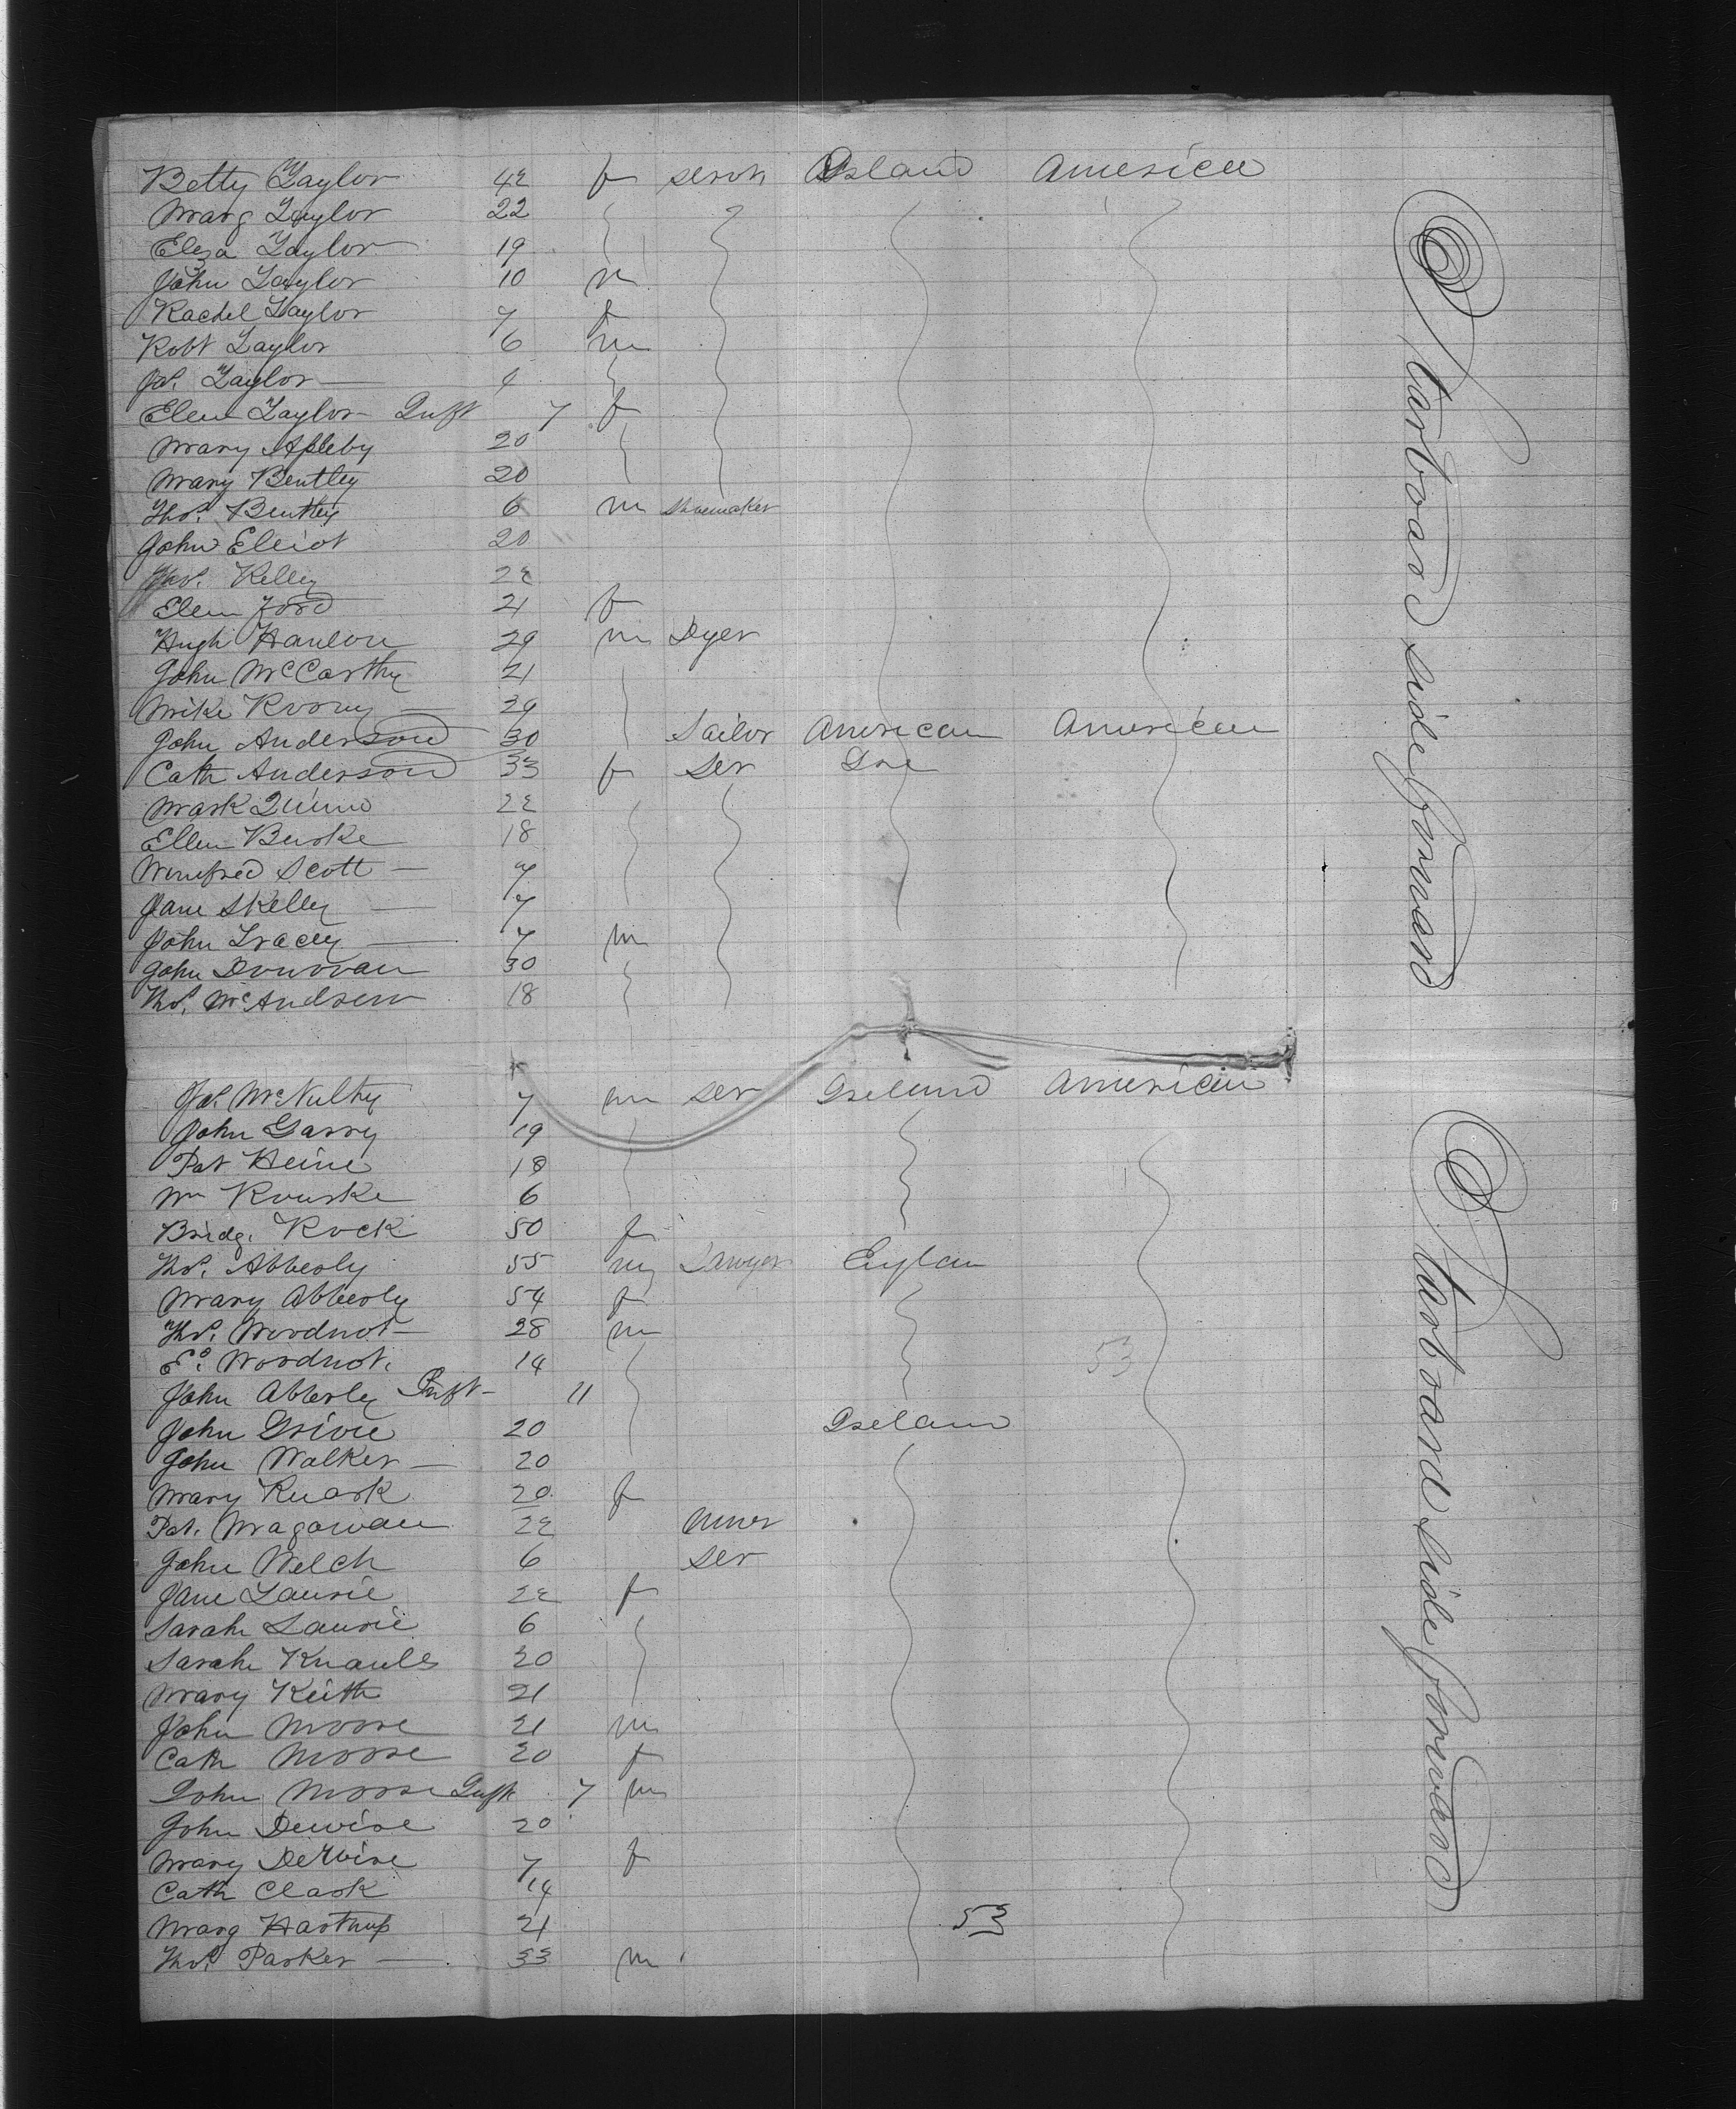 Betty Taylor 42 f servt Ireland America
Marg Taylor 22
Eliza Taylor 19
John Taylor 10 m
Rachel Taylor 7 f
Robt Taylor 6 m
Js. Taylor 4
Elen Taylor Inft 7 f
Mary Apleby 20
Mary Bentley 20
Thos. Bentley 6 m Shoemaker
John Elliot 20
Thos. Kelley 22
Elen Ford 21 f
Hugh Hanlon 29 m Dyer
John McCarthy 21
Mike Roony 29
John Anderson 30 Sailor American American
Cath Anderson 33 f Ser Ire
Mark Quinn 22
Ellen Burke 18
Winifred Scott 7
Jane Skelley 7
John Tracey 7 m
John Donovan 30
Thos. McAndrew 18
Starboard side forward
Js. McNulty 7 m ser Ireland American
John Garry 19
Pat Heine 18
Wm Rourke 6
Bridg. Rock 50 f
Thos. Abberly 55 m Sawyer Englan
Mary Abberly 54 f
Thos. Woodnot 28 m
Ed. Woodnot. 14
53
John Abberley Inft 11
John Grivie 20 Ireland
John Walker 20
Mary Ruark 20 f
Pat. Magowan 22 miner
John Welch 6 ser
Jane Laurie 22 f
Sarah Laurie 6
Sarah Knaules 20
Mary Keith 21
John Moore 21 m
Cath Moore 20 f
John Moore Inft 7 m
John Dewire 20
Mary Dewire 7 f
Cath Clark 14
Marg Hartnup 21
53
Thos. Parker 33 m
Starboard side forward